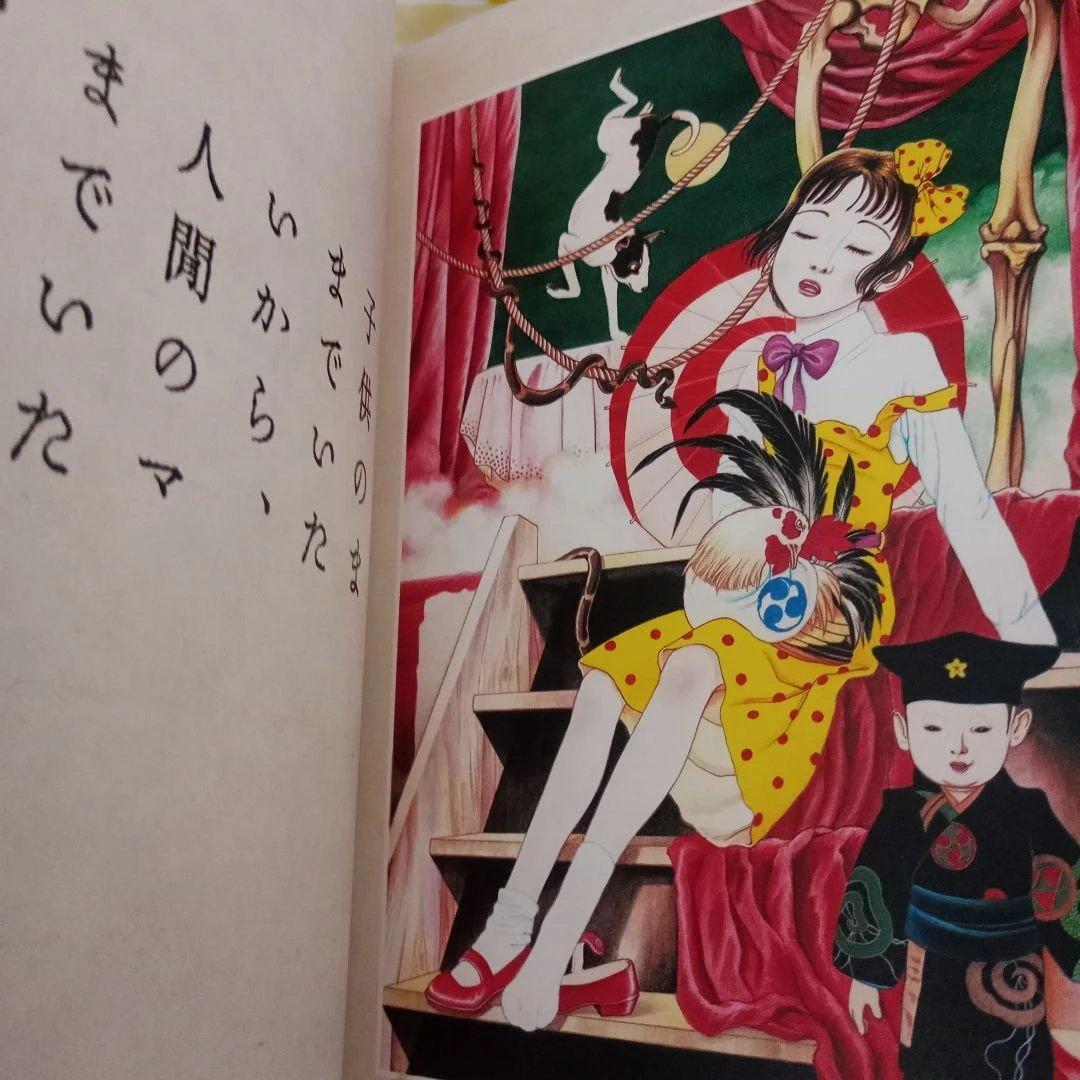 子供のま
までいた
いから、
人間のマ
までいた